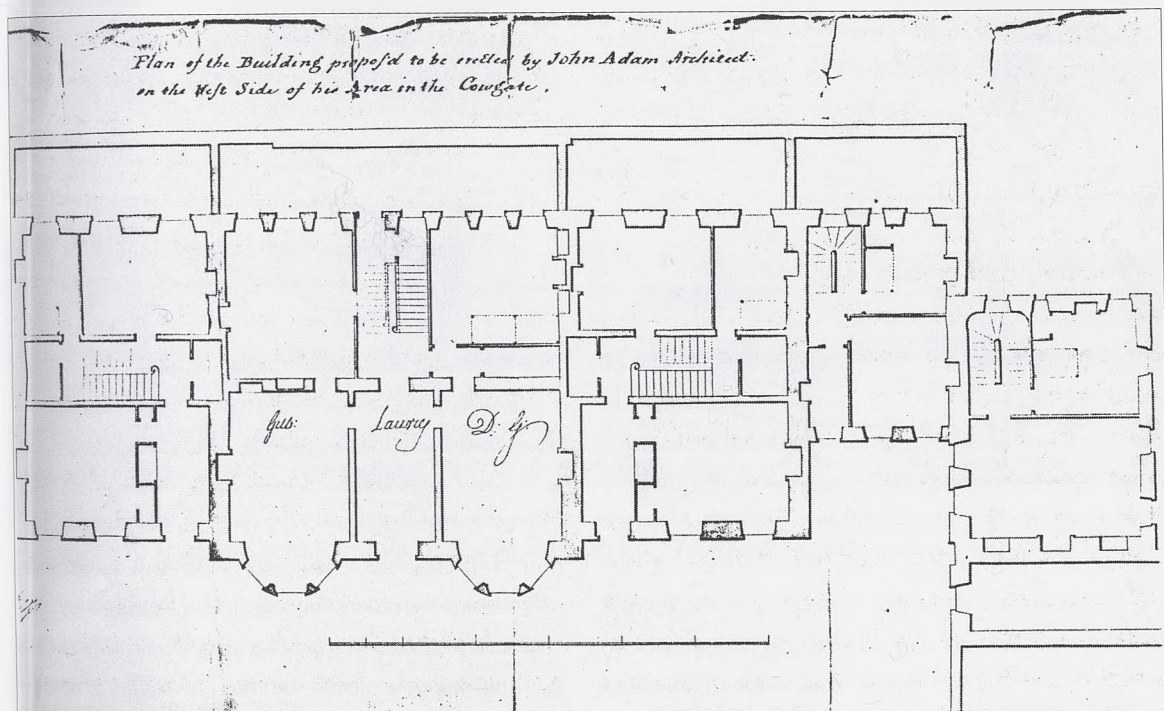 Plan of the Building propos'd to be erected by John Adam Architect.
on the West Side of his Area in the Cowgate.
Gilb: Laurie D. G.